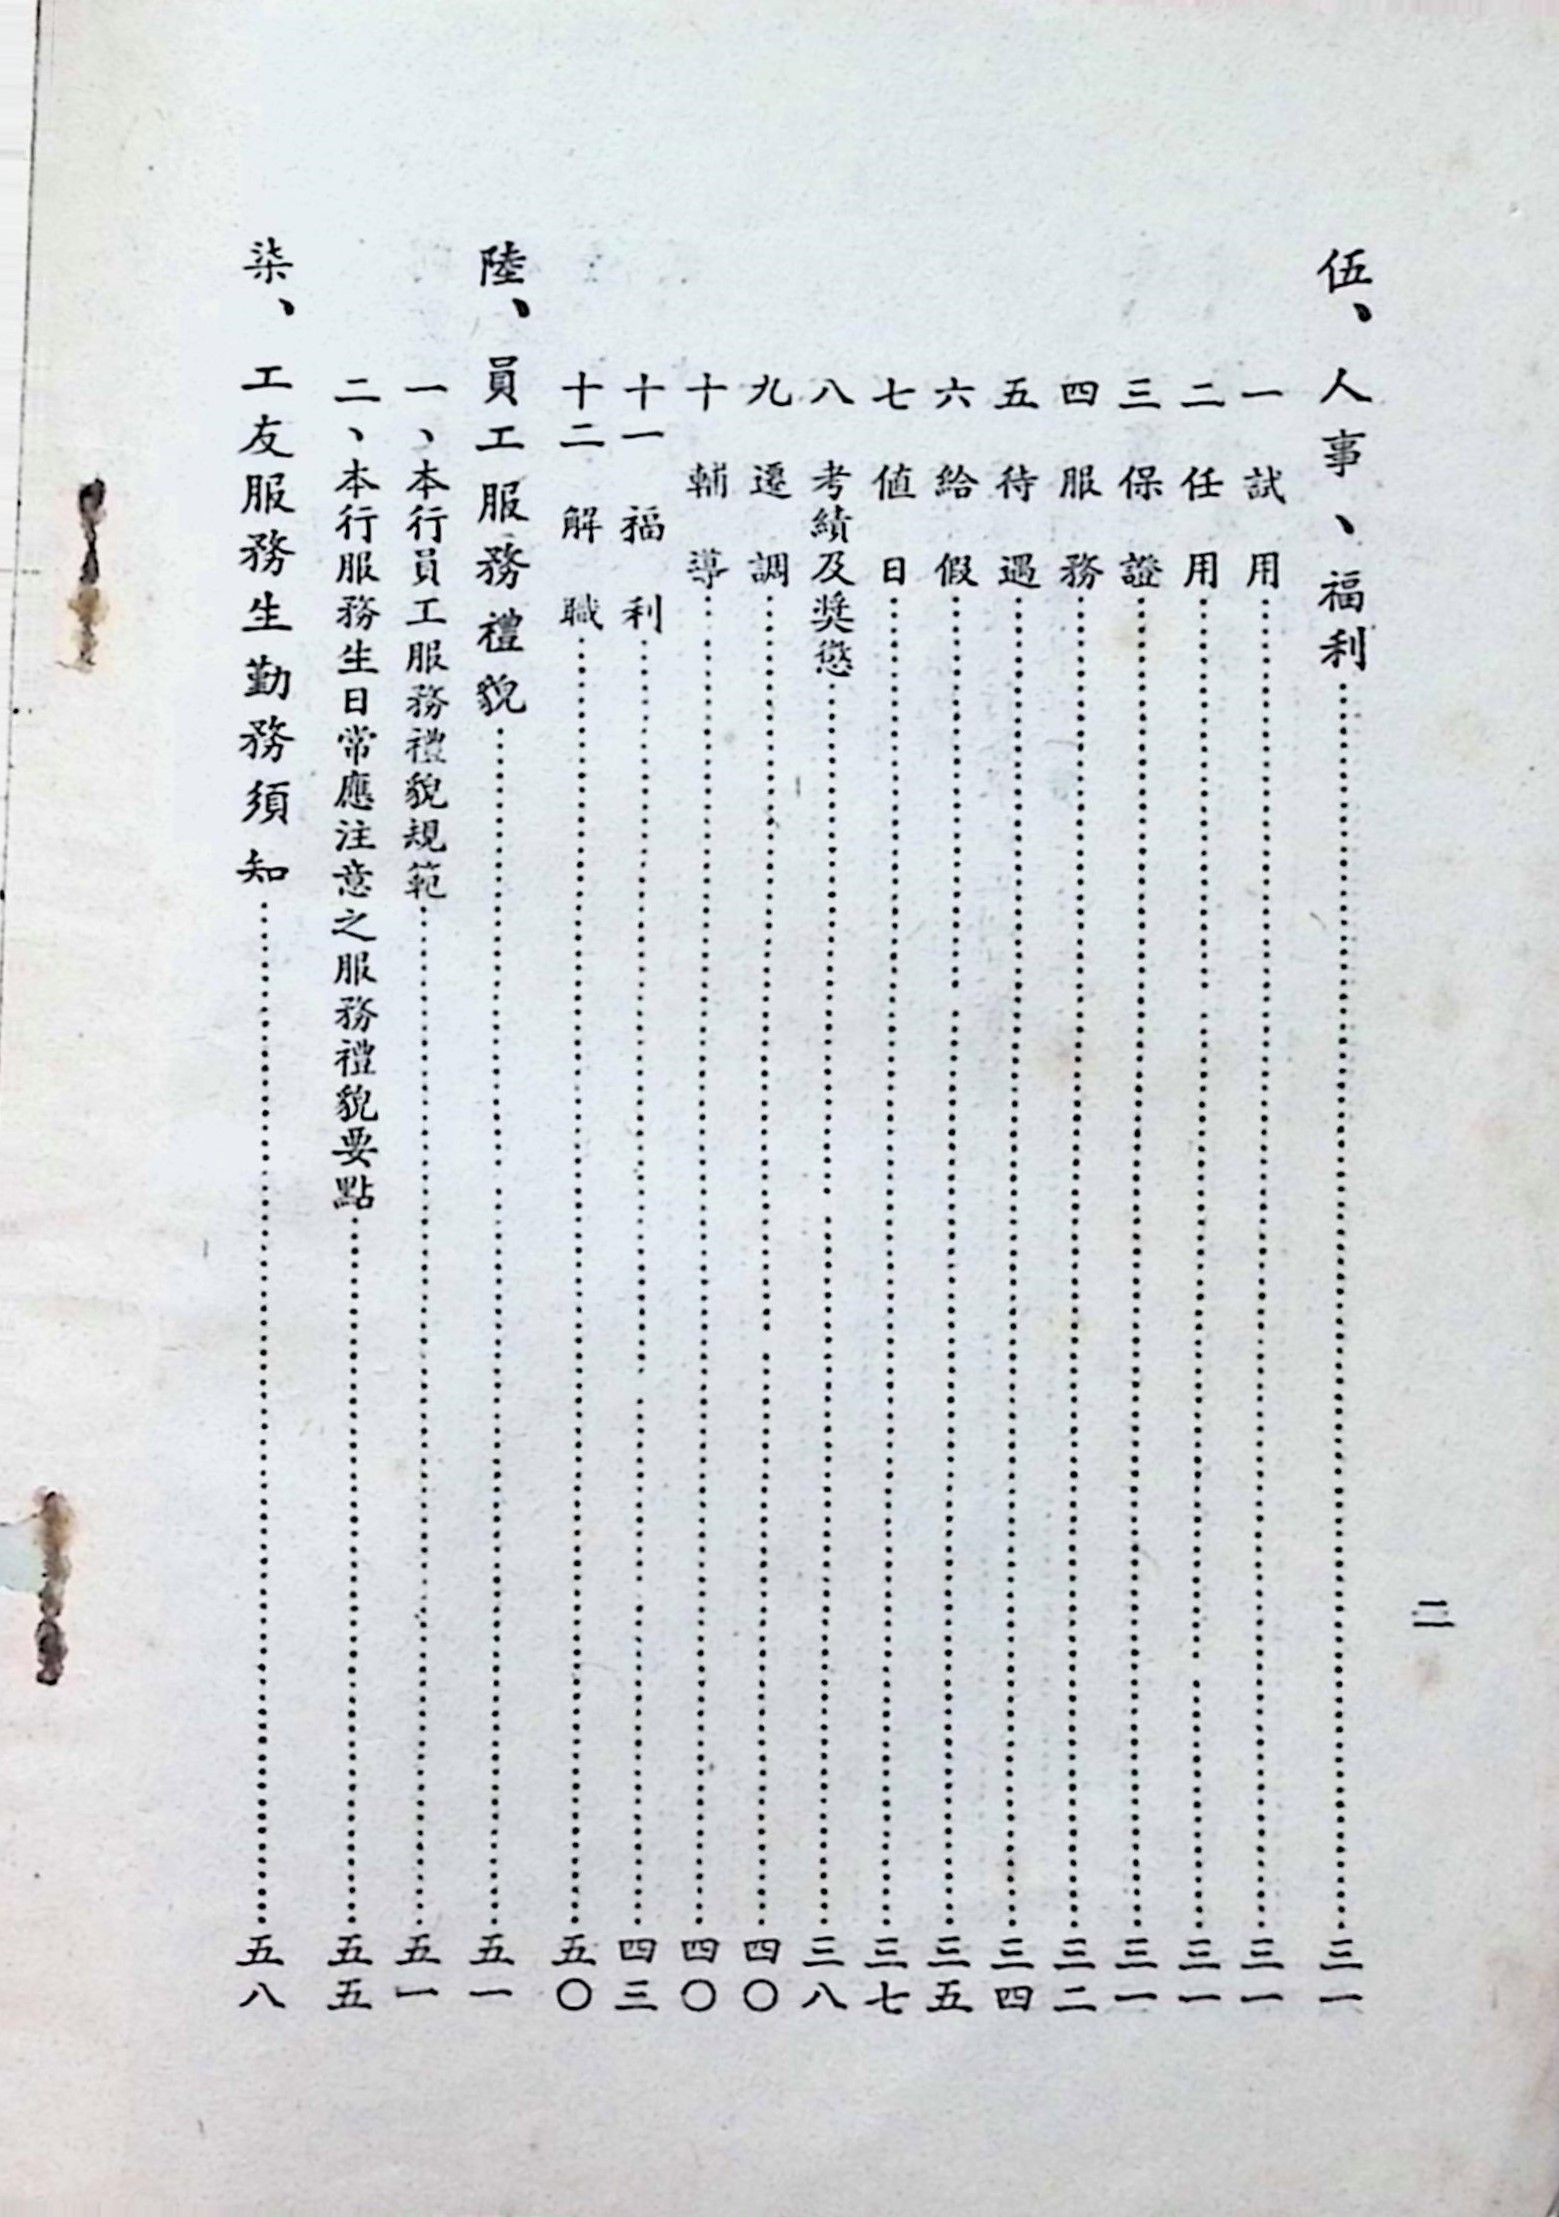 二
伍、人事、福利……三一
一 試用……三一
二 任用……三一
三 保證……三一
四 服務……三二
五 待遇……三四
六 給假……三五
七 值日……三七
八 考績及奬懲……三八
九 遷調……四〇
十 輔導……四〇
十一 福利……四三
十二 解職……五〇
陸、員工服務禮貌……五一
一、本行員工服務禮貌規範……五一
二、本行服務生日常應注意之服務禮貌要點……五五
柒、工友服務生勤務須知……五八